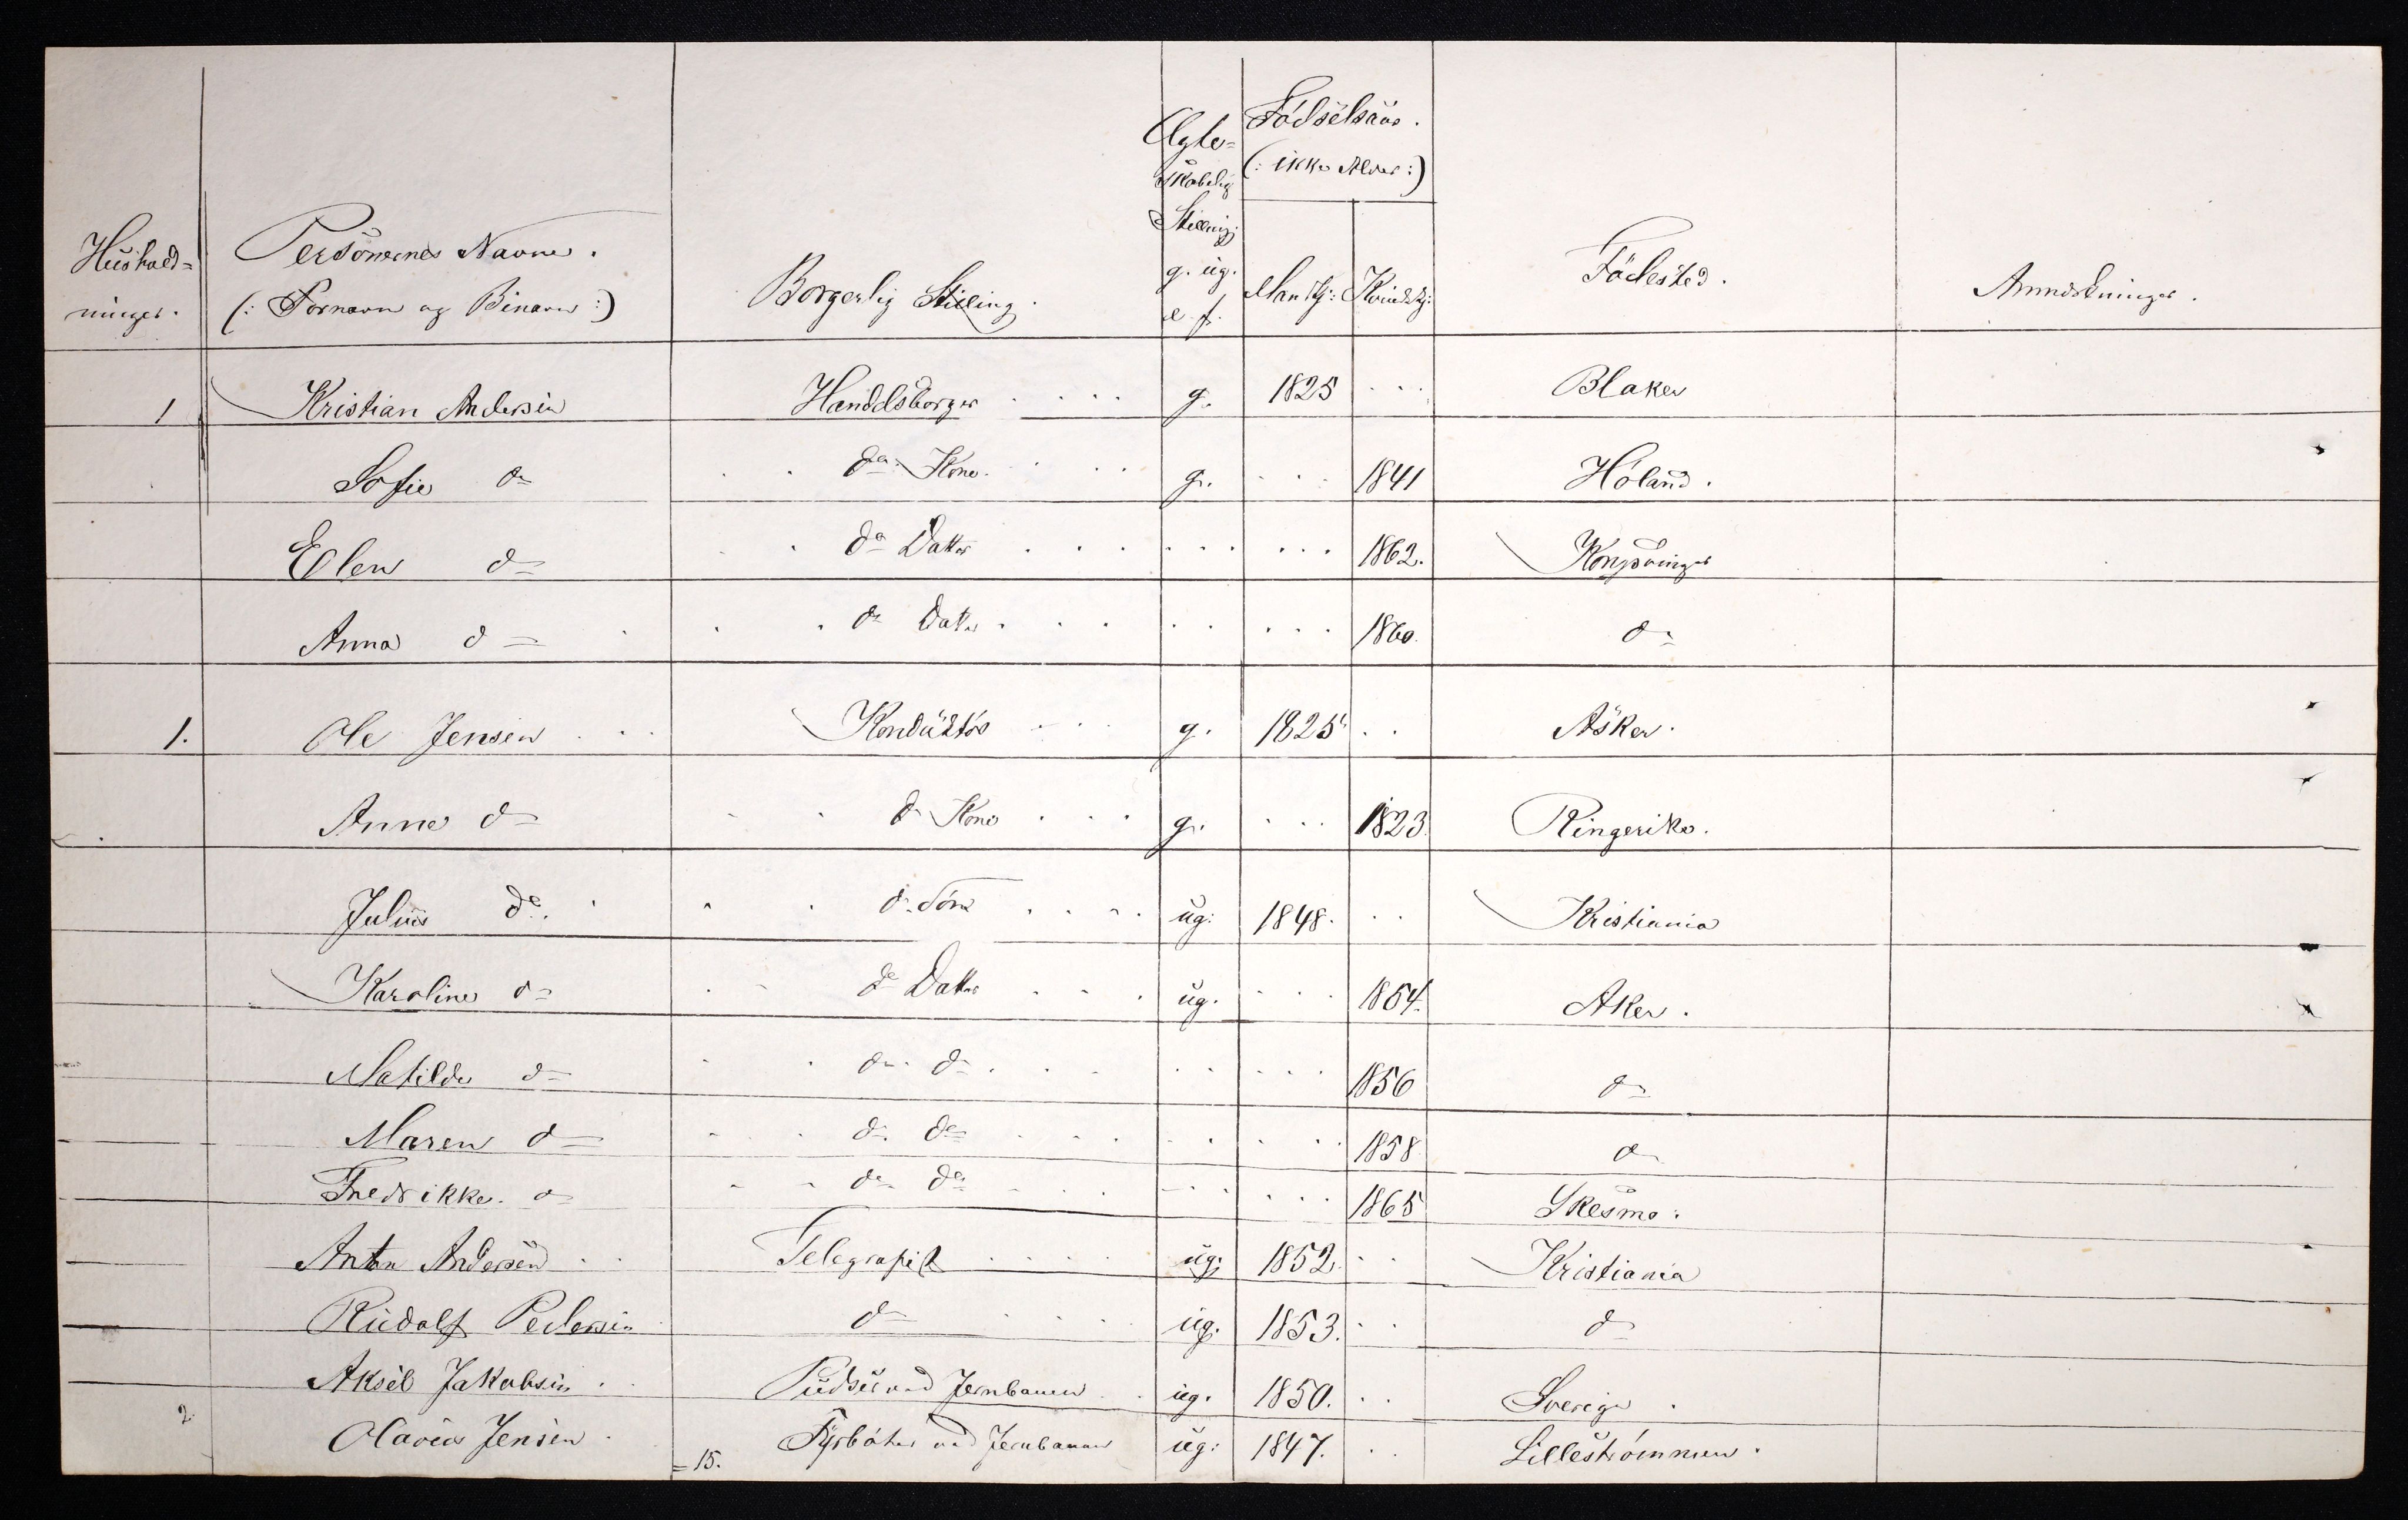 Hushold= Personernes Navne. Borgerlig Stilling. Ægte= Fødselsaar. Fødested. Anmærkninger.
ninger. (: Fornavn og Binavn :) skabelig (: ikke Alder :)
Stilling
g. ug. Mankj: Kvindekj:
e. f.
1 Kristian Andersen Handelsborger . . . . g. 1825 . . . Blaker
Sofie do . . do Kone . . . g. . . . 1841 Høland.
Elen do . . do Datter . . . . . . . . . 1862. Kongsvinger
Anna do . . . do Datter . . . . . . . . 1860. do
1. Ole Jensen . . . Konduktør . . . g. 1825 . . Asker.
Anne do . . do Kone . . . g. . . . 1823. Ringerike.
Julius do . . . do Søn . . . . ug. 1848. . . Kristiania
Karoline do . . do Datter . . . ug. . . . 1854. Aker.
Matilde do . . do do . . . . . . . . 1856 do
Maren do . . do do . . . . . . . 1858 do
Fredrikke do . . do do . . . . . . . 1865 Skesmo.
Anton Andersen . . Telegrafist . . . . . ug: 1852. . . Kristiania
Rudolf Pedersen do . . . . ug. 1853. . . do
Aksel Jakobsen . . Pudser ved Jernbanen . . ug. 1850. . . Sverige .
2. Olavus Jensen . =15. Fyrbøter ved Jernbanen ug: 1847. . . Lillestrømmen.